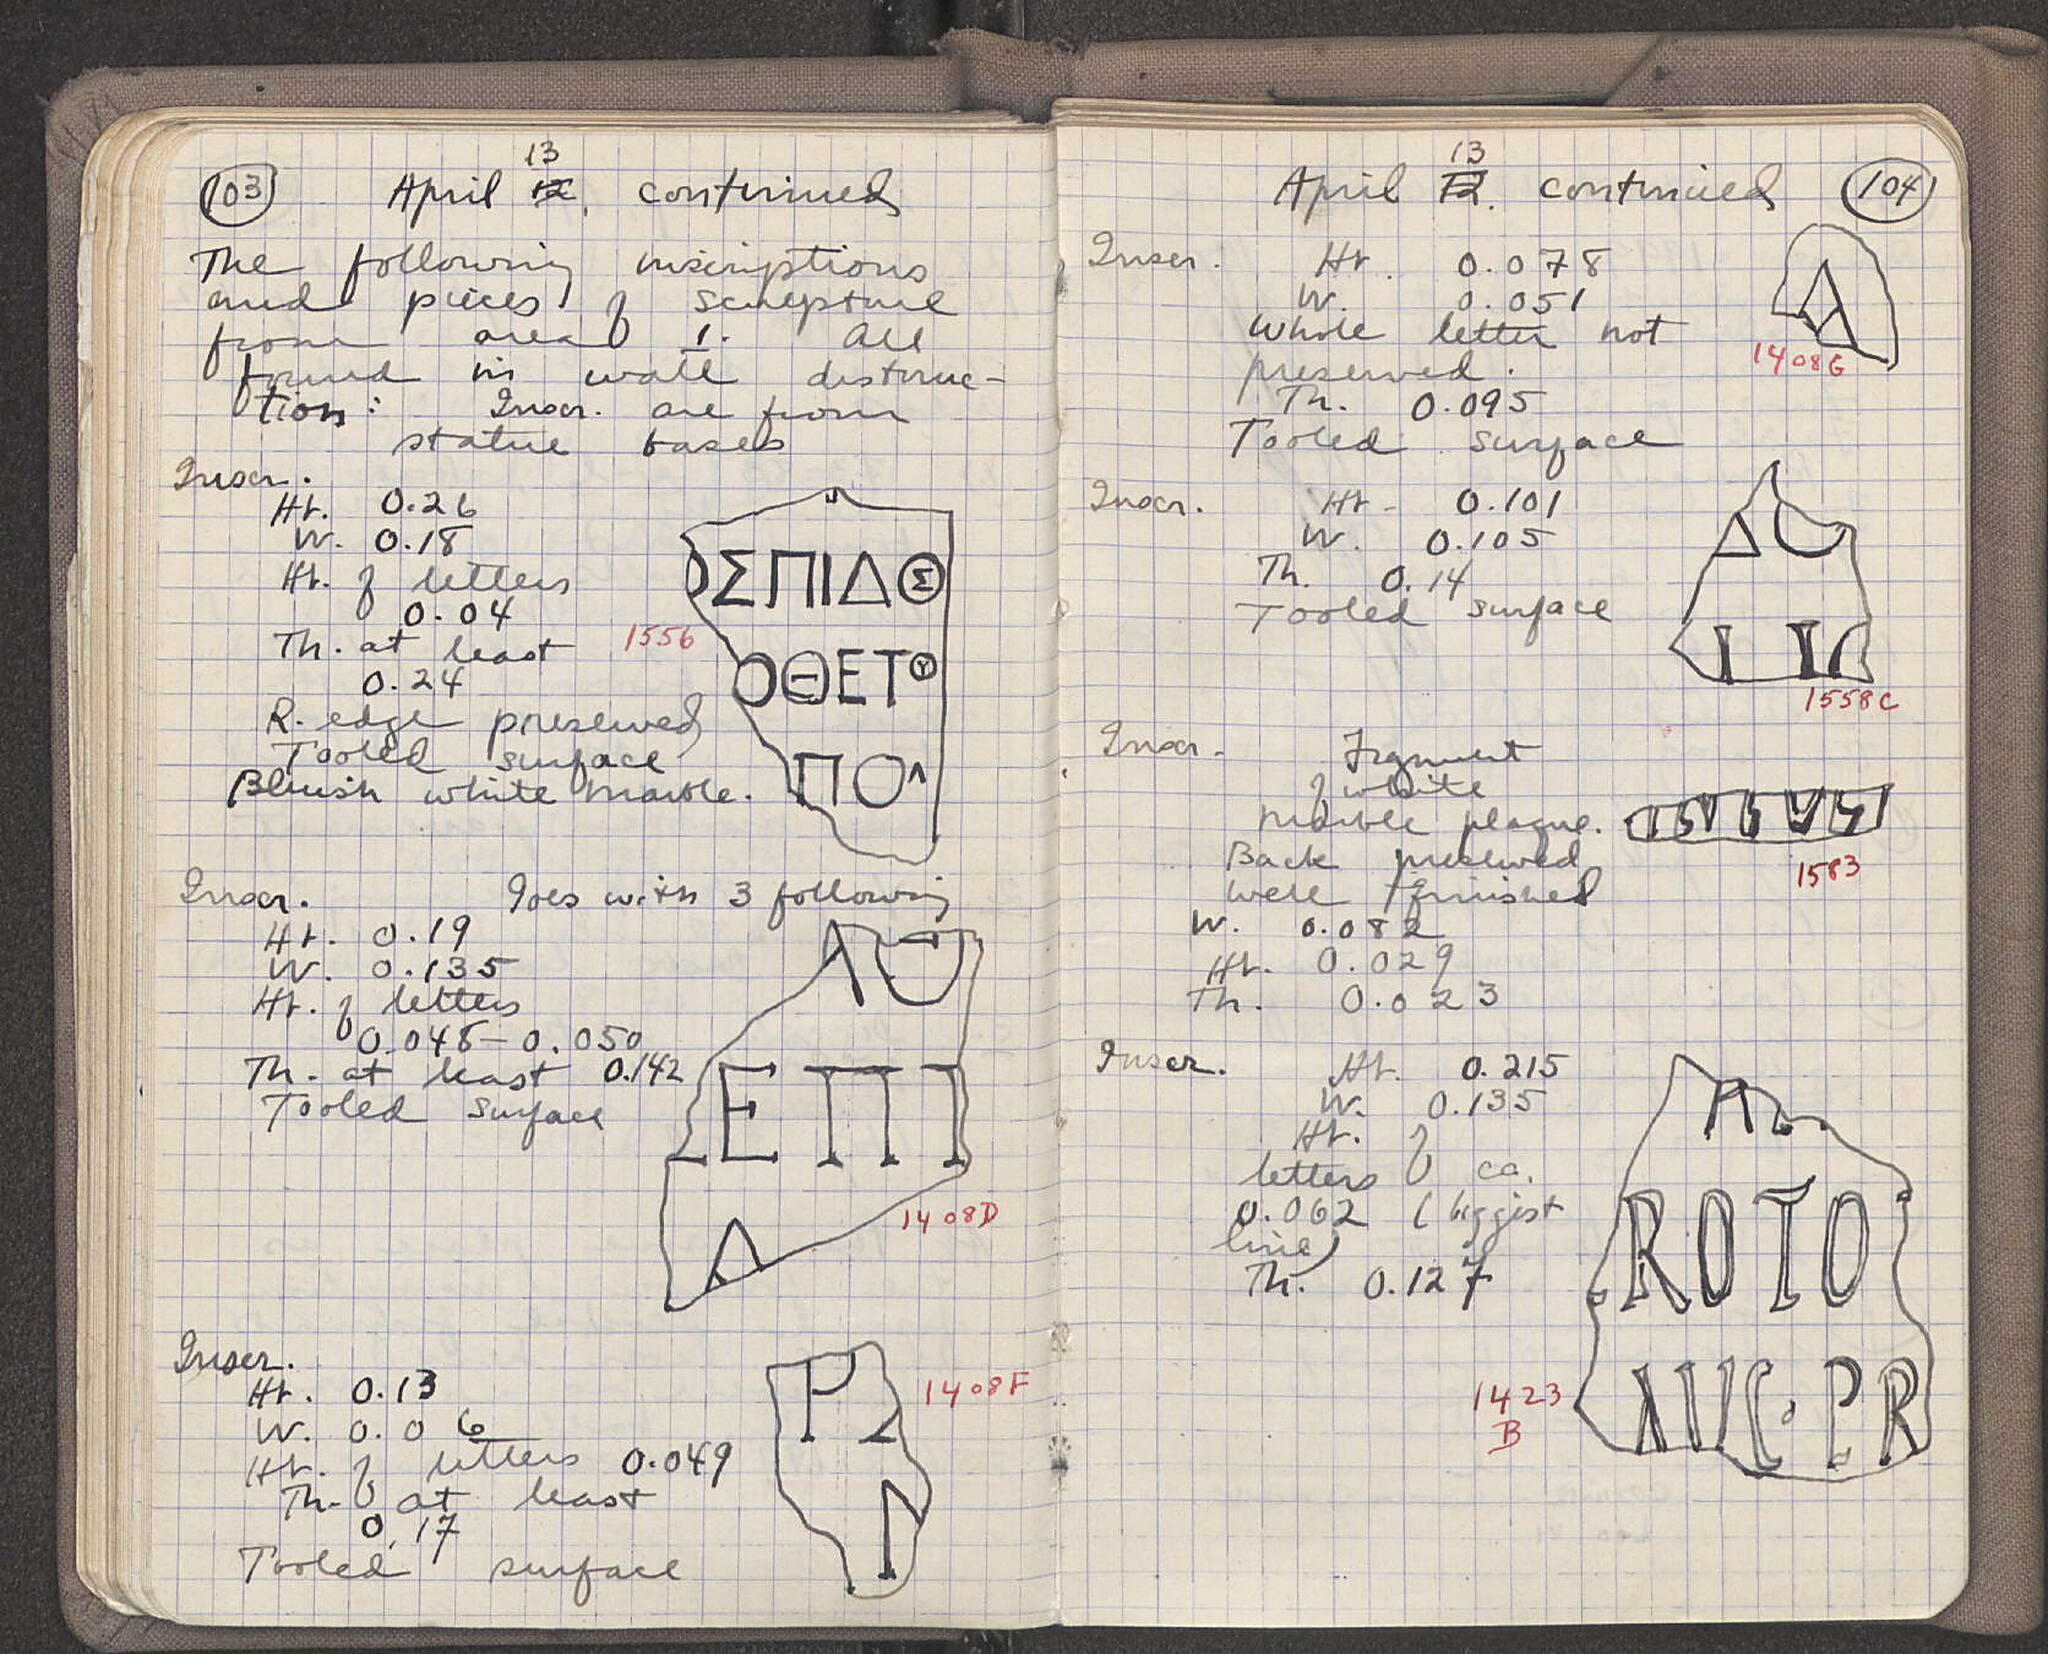 103
April 12 13. continued
The following inscriptions
and pieces of sculpture
from area 1. All
found in wall destruc-
tion: Inscr. are from
statue bases
Inscr.
Ht. 0.26
W. 0.18
Ht. of letters
0.04
Th. at least
0.24
R. edge preserved
Tooled surface
Bluish white marble.
ΣΠΙΔΟΣ
ΟΘΕΤΟΥ
ΠΟΛ
1556
Inscr. Goes with 3 following
Ht. 0.19
W. 0.135
Ht. of letters
0.048-0.050
Th. at least 0.142
Tooled surface
ΕΠΙ
Λ
1408D
Inscr.
Ht. 0.13
W. 0.06
Ht. of letters 0.049
Th. at least
0.17
Tooled surface
1408F
April 12 13. continued
104
Inscr. Ht. 0.078
W. 0.051
Whole letter not
preserved.
Th. 0.095
Tooled surface
1408G
Inscr. Ht. 0.101
W. 0.105
Th. 0.14
Tooled surface
1558C
Inscr. Frgment
of white
marble plaque.
Back preserved
well finished
W. 0.082
Ht. 0.029
Th. 0.023
1583
Inscr. Ht. 0.215
W. 0.135
Ht. of
letters ca.
0.062 (biggist
line)
Th. 0.127
ROTO
AVG·PR
1423
B